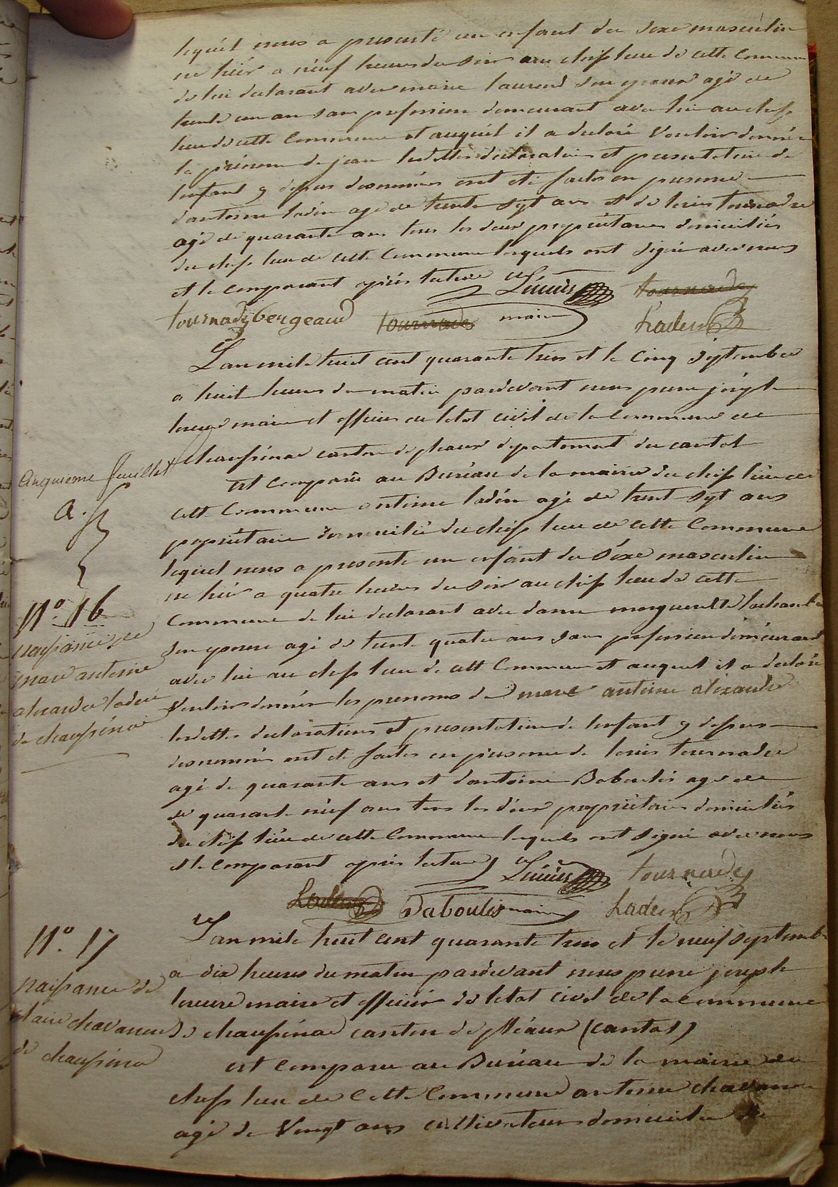 lequel nous a presenté un enfant du sexe masculin
né hier a neuf heures du soir au chef lieu de cette Commune
de lui declarant avec marie laurens son epouse agé de
trente un an san profession demeurant avec lui au chef
lieu de cette Commune et auquel il a declaré Vouloir donner
le prénom de jean lesdittes declaration et presentation de
lenfant y depus denommés ont eté faites en presence
dantoine ladén agé de trente sept ans et de louis tournadre
agé de quarante ans tous les deux propriétaires domiciliés
du chef lieu de cette Commune lesquels ont signé avec nous
et le comparant aprés lecture
tournadre
tournadre maire Laden
Lan mile huit cent quarante trois et le cinq Septembre
a huit heures du matin pardevant nous pierre joseph
maire et officier de letat civil de la Commune de
chaussénac canton de pleaux département du cantal
est comparu au Bureau de la mairie du chef lieu de
cette Commune antoine ladén agé de trent sept ans
propriétaire domicilié du chef lieu de cette Commune
lequel nous a presenté un enfant du séxe masculin
né hier a quatre heures du soir au chef lieu de cette
Commune de lui declarant avec danne marguerite
son epouse agé de trent quatre ans sans profession demeurant
avec lui au chef lieu de cette Commune et auquel il a declaré
Vouloir donner les prenoms de marc antoine aléxandre
lesdittes declarations et presentation de lenfant y depus
denommés ont eté faites en présence de louis tournadre
agé de quarante ans et dantoine Daboulis agé de
de quarante neuf ans tous les deux propriétaires domiciliés
du chef lieu de cette Commune lesquels ont signé avec nous
et le comparant aprés lecture tournadre
Laden Daboulis maire Laden
cinquieme feuillet
a.
N°. 16
naissance de
marc antoine
alexandre laden
de chaussénac
Lan mile huit cent quarante trois et le neuf septembre
a dix heures du matin pardevant nous pierre joseph
maire et officier de letat civil de la commune
de chaussénac canton de pleaux (cantal)
est comparu au Bureau de la mairie du
chef lieu de cette Commune antoine chavanne
agé de Vingt ans cultivateur domicilié de
N°. 17
naissance de
chavanne
de chaussénac